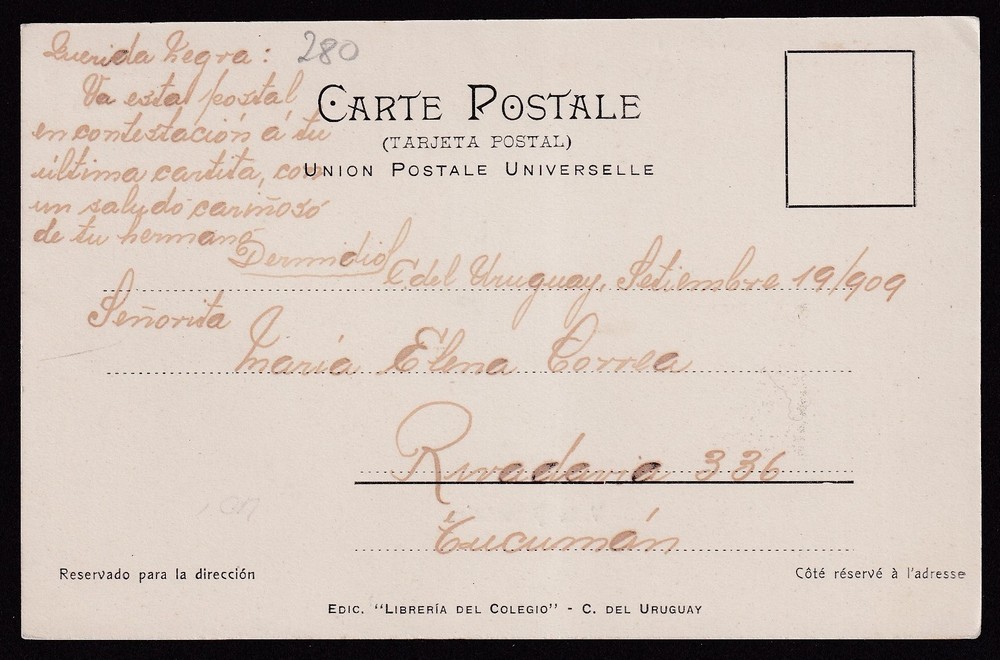 Querida Negra: 280
Va esta postal
en contestación á tu
última cartita, con
un saludo cariñoso
de tu hermano
Dermidio
CARTE POSTALE
(TARJETA POSTAL)
UNION POSTALE UNIVERSELLE
C del Uruguay, Setiembre 19/909
Señorita
María Elena Correa
Rivadavia 336
Tucumán
Reservado para la dirección
Côté réservé à l'adresse
EDIC. "LIBRERÍA DEL COLEGIO" - C. DEL URUGUAY